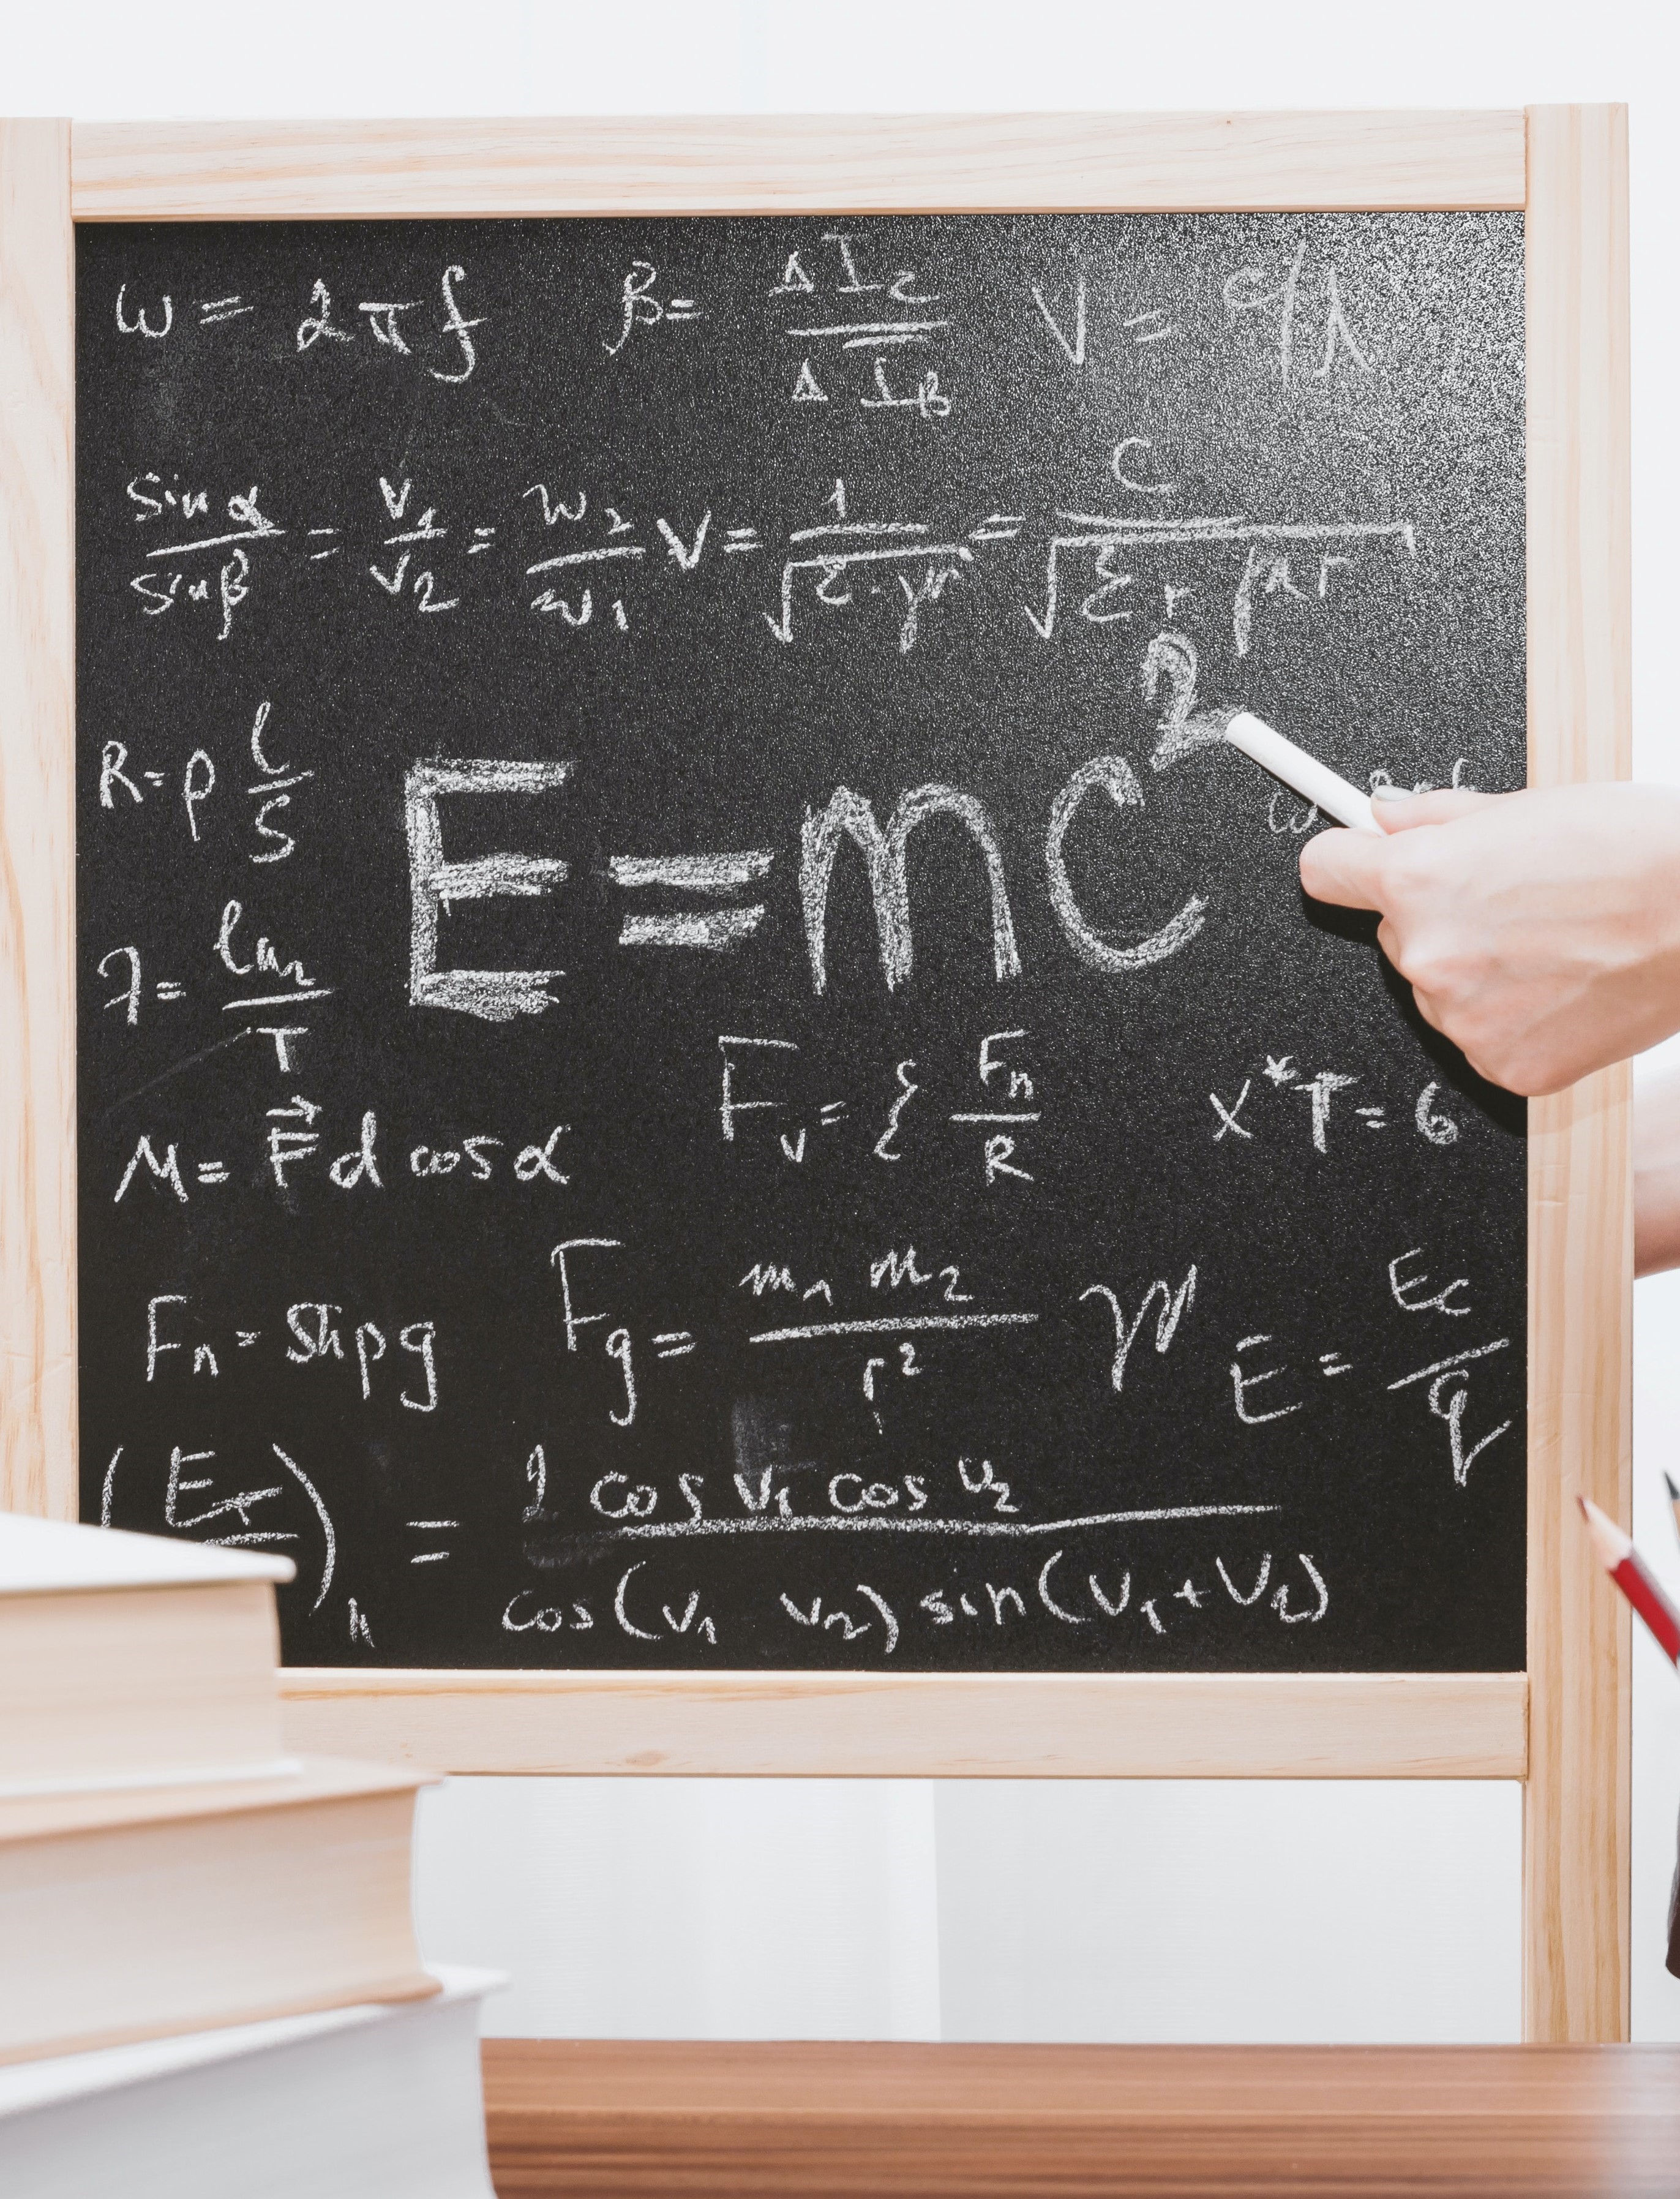 ω = 2πf   β = ΔI_C / ΔI_B   V = c/λ
sin α / sin β = v₁ / v₂ = w₂ / w₁   V = 1 / √(ε·μ) = C / √(ε_r μ_r)
R = ρ l / S
E = mc²
λ = ln2 / T
F_v = ξ F_n / R   x*T = 6
M = F⃗ d cos α
F_n = Shρg   F_g = m₁ m₂ / r²   E = E_c / q
(E_T / )_∥ = 2 cos v₁ cos v₂ / cos(v₁ v₂) sin(v₁ + v₂)